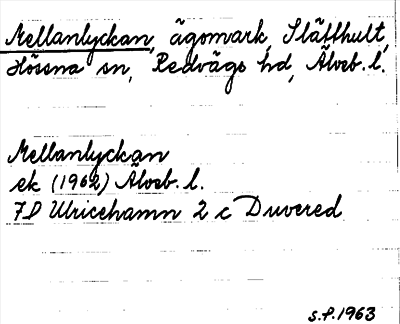 Mellanlyckan, ägomark, Slätthult,
Hössna sn, Redvägs hd, Älvsb. l.
Mellanlyckan
ek (1962) Älvsb. l.
7D Ulricehamn 2 c Duvered
S.P. 1963